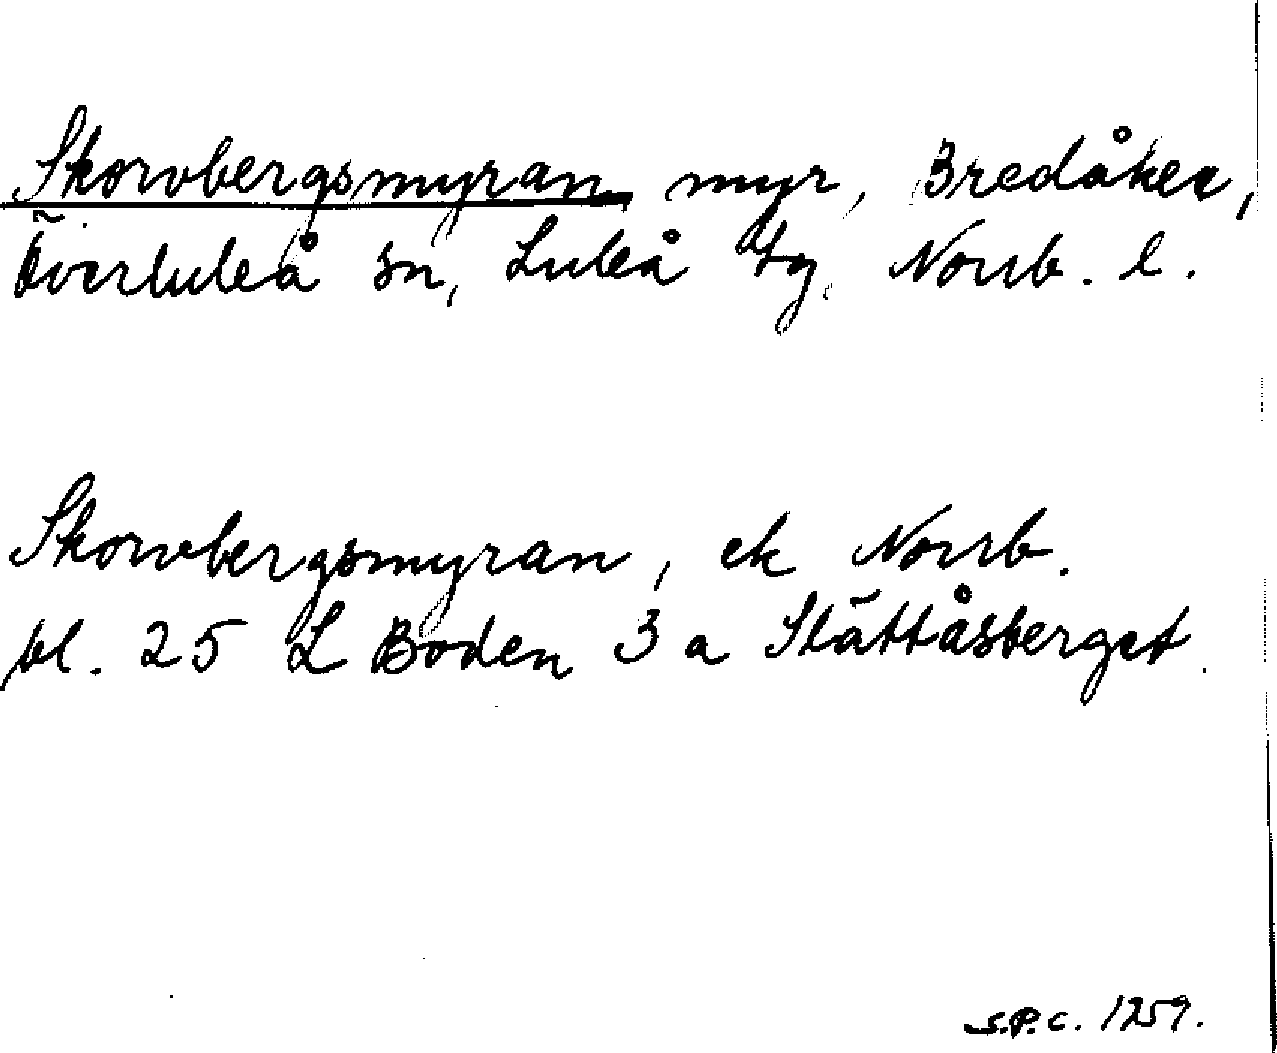 Skorvbergsmyran myr, Bredåker,
Överluleå sn, Luleå tg. Norrb. l.
Skorvbergsmyran, ek Norrb.
bl. 25 L Boden 3 a Slättåsberget.
S.P.C. 1259.